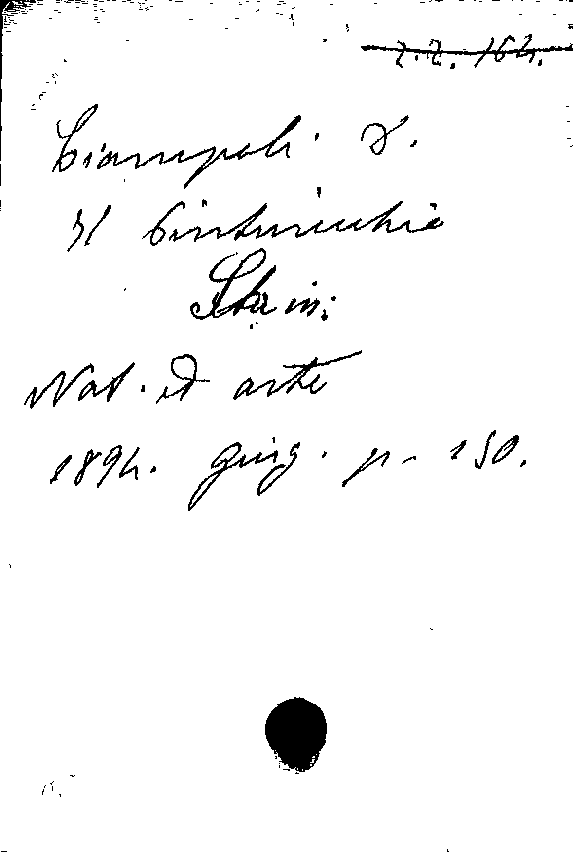 Z.Z. 164.
Ciampoli. D.
Il Pinturicchio
Sta in:
Nat. ed arte
1894. giug. p. 150.